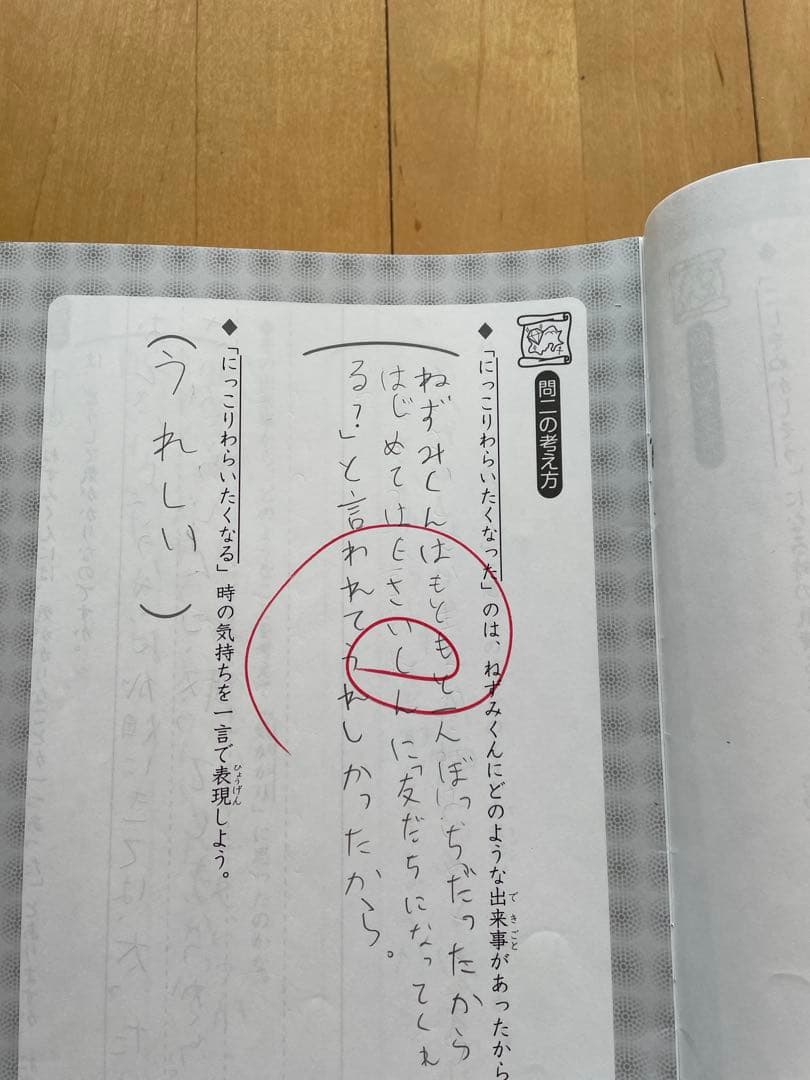 問二の考え方
◆「にっこりわらいたくなった」のは、ねずみくんにどのような出来事があったから
ねずみくんはもともと一人ぼっちだったから
はじめてはとさいしんに「友だちになってくれ
る？」と言われてうれしかったから。
◆「にっこりわらいたくなる」時の気持ちを一言で表現しよう。
（うれしい）